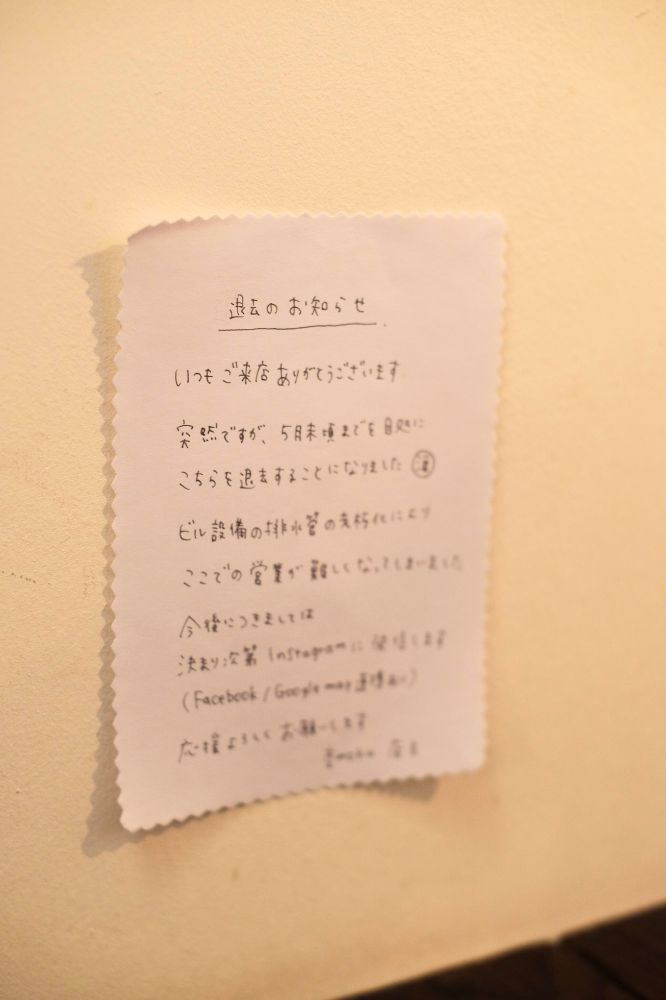 退去のお知らせ
いつもご来店ありがとうございます
突然ですが、5月末頃までを目処に
こちらを退去することになりました
ビル設備の排水管の老朽化により
ここでの営業が難しくなってしまいました
今後につきましては
決まり次第 Instagramに発信します
(Facebook / Google map 連携あり)
応援よろしくお願いします
店主